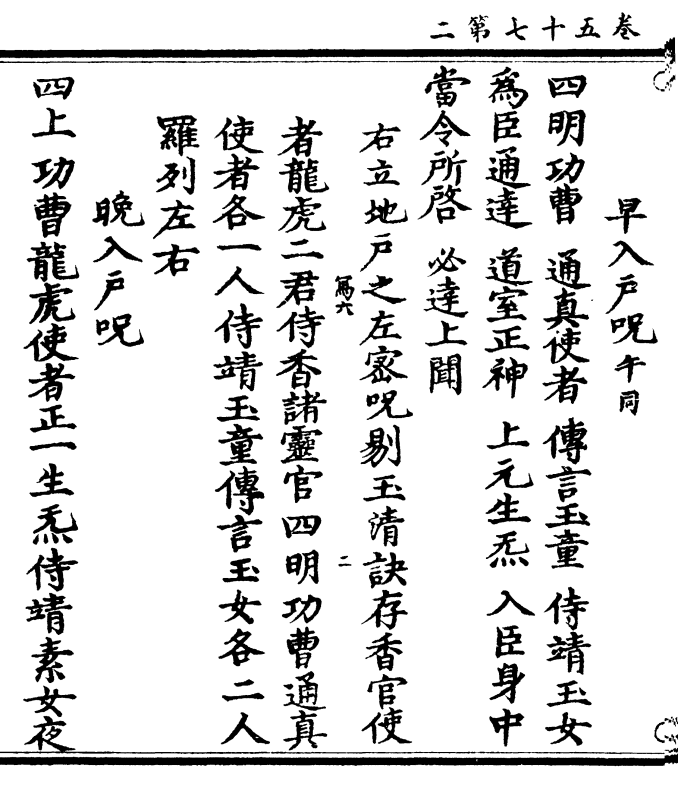 卷五十七第二
早入户呪午同
四明功曹 通真使者 傳言玉童 侍靖玉女
爲臣通達 道室正神 上元生炁 入臣身中
當令所啓 必達上聞
右立地户之左密呪剔玉清訣存香官使
爲六 二
者龍虎二君侍香諸靈官四明功曹通真
使者各一人侍靖玉童傳言玉女各二人
羅列左右
晚入户呪
四上功曹龍虎使者正一生炁侍靖素女夜